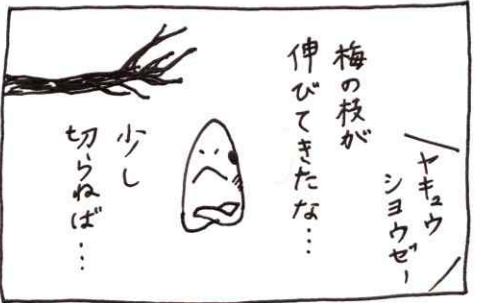 ヤキュウ
シヨウゼー
梅の枝が
伸びてきたな…
少し
切らねば…